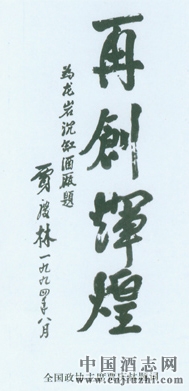 再創輝煌
为龙岩沉缸酒厂题
贾庆林一九九四年八月
全国政协主席贾庆林题词
中国酒志网
www.cnjiuzhi.com